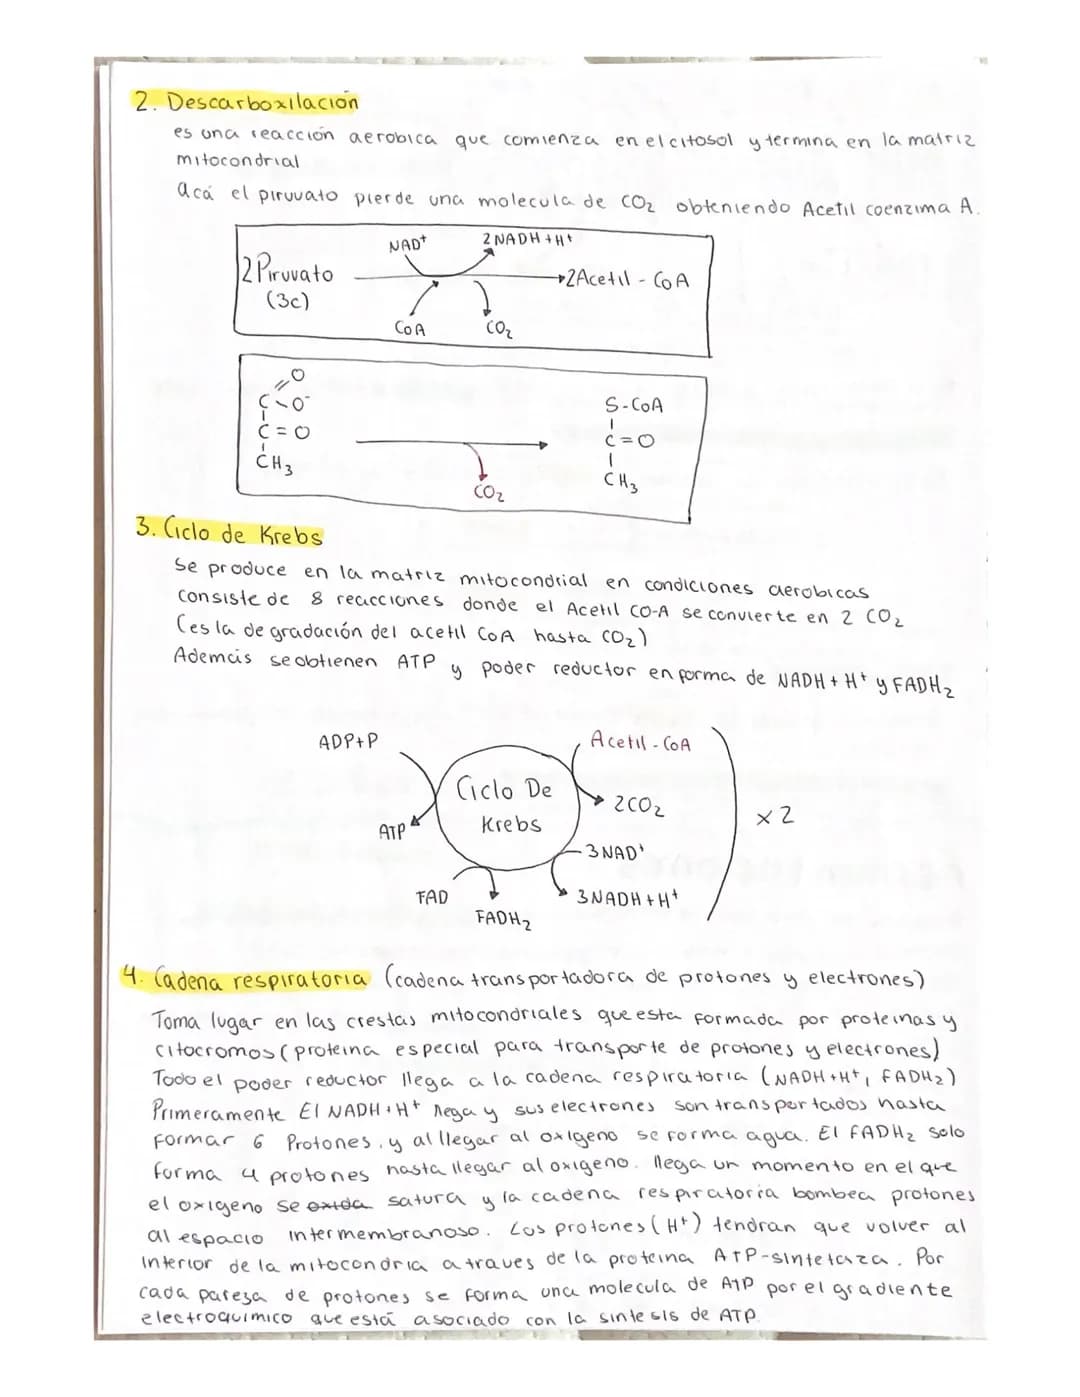 2. Descarboxilación
es una reacción aerobica que comienza en el citosol y termina en la matriz
mitocondrial
acá el piruvato pierde una molecula de CO₂ obteniendo Acetil coenzima A.
NAD⁺ 2 NADH + H⁺
2 Piruvato → 2 Acetil - CoA
(3c)
CoA CO₂
O
C - O⁻ S - CoA
C = O C = O
CH₃ CH₃
CO₂
3. Ciclo de Krebs
Se produce en la matriz mitocondrial en condiciones aerobicas
consiste de 8 reacciones donde el Acetil CO-A se convierte en 2 CO₂
(es la degradación del acetil CoA hasta CO₂)
Además se obtienen ATP y poder reductor en forma de NADH + H⁺ y FADH₂
ADP+P Acetil - CoA
Ciclo De 2CO₂
Krebs x 2
ATP
3 NAD⁺
FAD 3 NADH + H⁺
FADH₂
4. Cadena respiratoria (cadena transportadora de protones y electrones)
Toma lugar en las crestas mitocondriales que esta formada por proteinas y
citocromos (proteina especial para transporte de protones y electrones)
Todo el poder reductor llega a la cadena respiratoria (NADH + H⁺, FADH₂)
Primeramente El NADH + H⁺ llega y sus electrones son transportados hasta
formar 6 Protones, y al llegar al oxigeno se forma agua. El FADH₂ solo
forma 4 protones hasta llegar al oxigeno. llega un momento en el que
el oxigeno se oxida satura y la cadena respiratoria bombea protones
al espacio intermembranoso. Los protones (H⁺) tendran que volver al
interior de la mitocondria a traves de la proteina ATP-sintetaza. Por
cada pareja de protones se forma una molecula de ATP por el gradiente
electroquimico que está asociado con la sintesis de ATP.